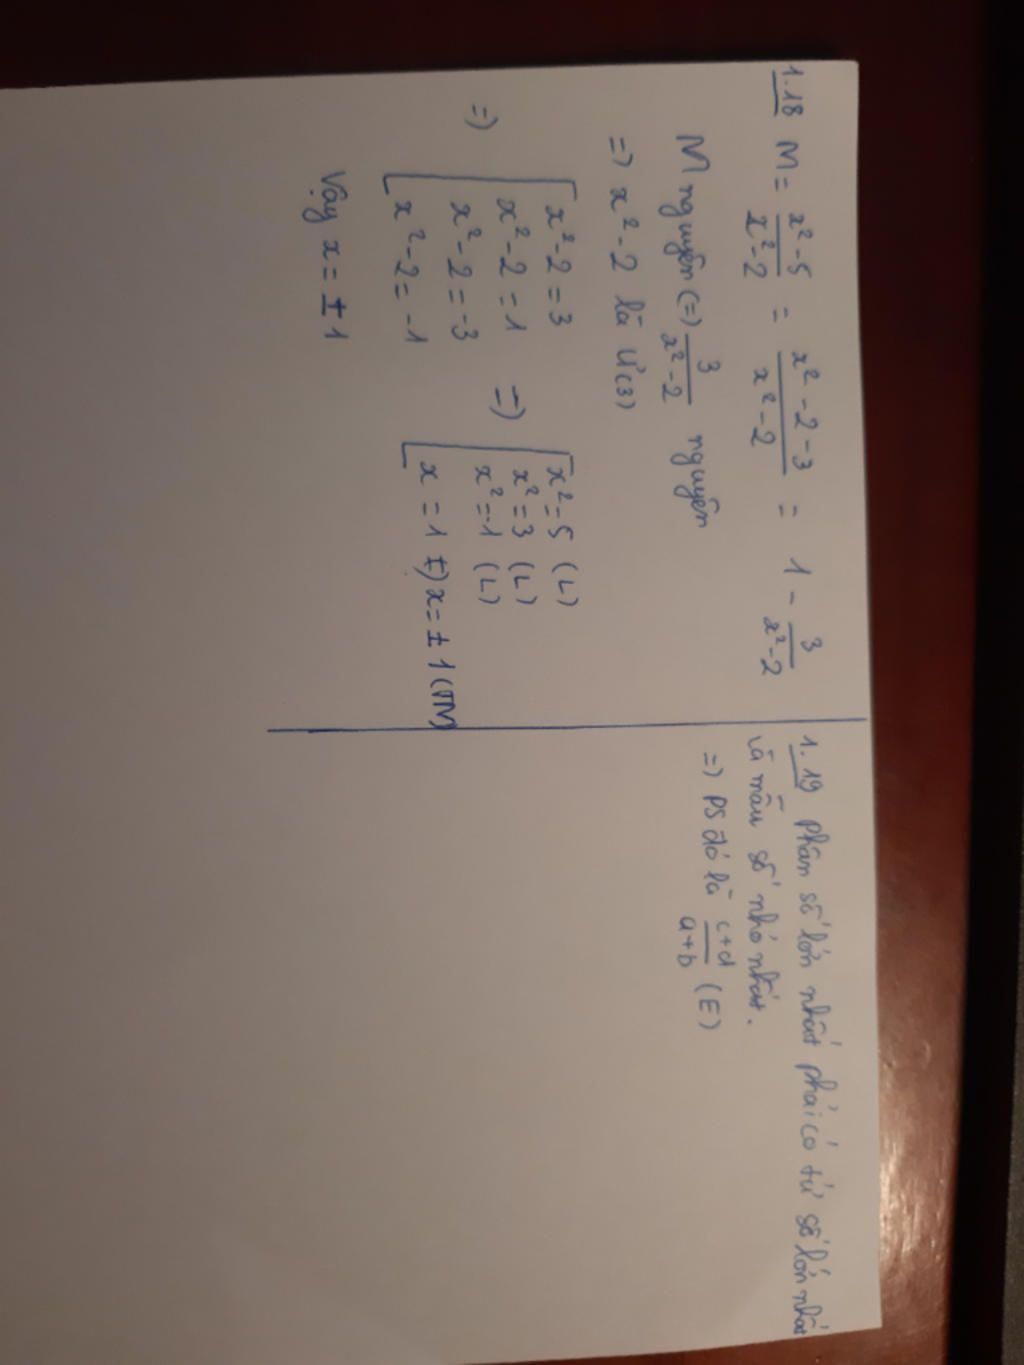 1.18 M = \frac{x²-5}{x²-2} = \frac{x²-2-3}{x²-2} = 1 - \frac{3}{x²-2}
M nguyên (=) \frac{3}{x²-2} nguyên
=) x²-2 là Ư(3)
=) [ x²-2=3
x²-2=1
x²-2=-3
x²-2=-1
=) [ x²=5 (L)
x²=3 (L)
x²=-1 (L)
x =1 (=) x=±1 (TM)
Vậy x=±1
1.19 Phân số lớn nhất phải có tử số lớn nhất
và mẫu số nhỏ nhất.
=) PS đó là \frac{c+d}{a+b} (E)